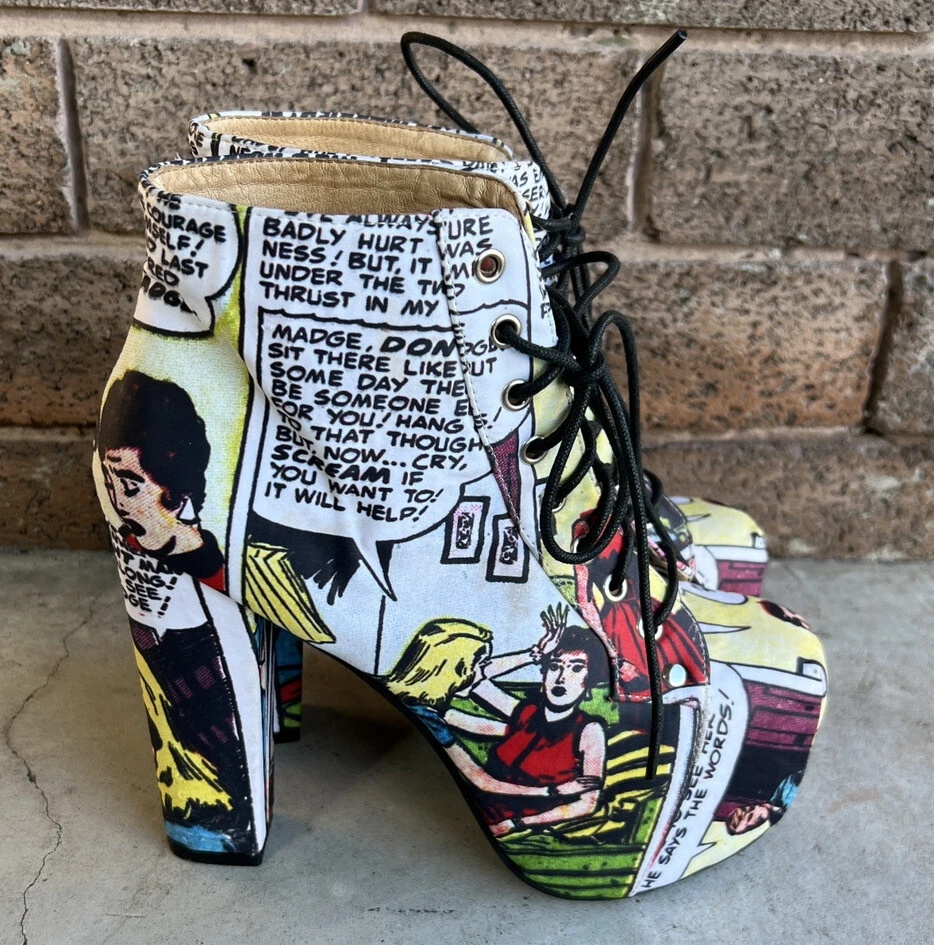 COURAGE
LAST
ALWAYS
BADLY HURT
NESS! BUT, IT
UNDER THE TWO
THRUST IN MY
URE
WAS
MADGE, DON
SIT THERE LIKE
SOME DAY THE
BE SOMEONE E
FOR YOU! HANG
TO THAT THOUGH
BUT NOW... CRY,
SCREAM IF
YOU WANT TO!
IT WILL HELP!
UT
MA
ONG!
SEE,
GE!
SEE HER
HE SAYS THE WORDS!